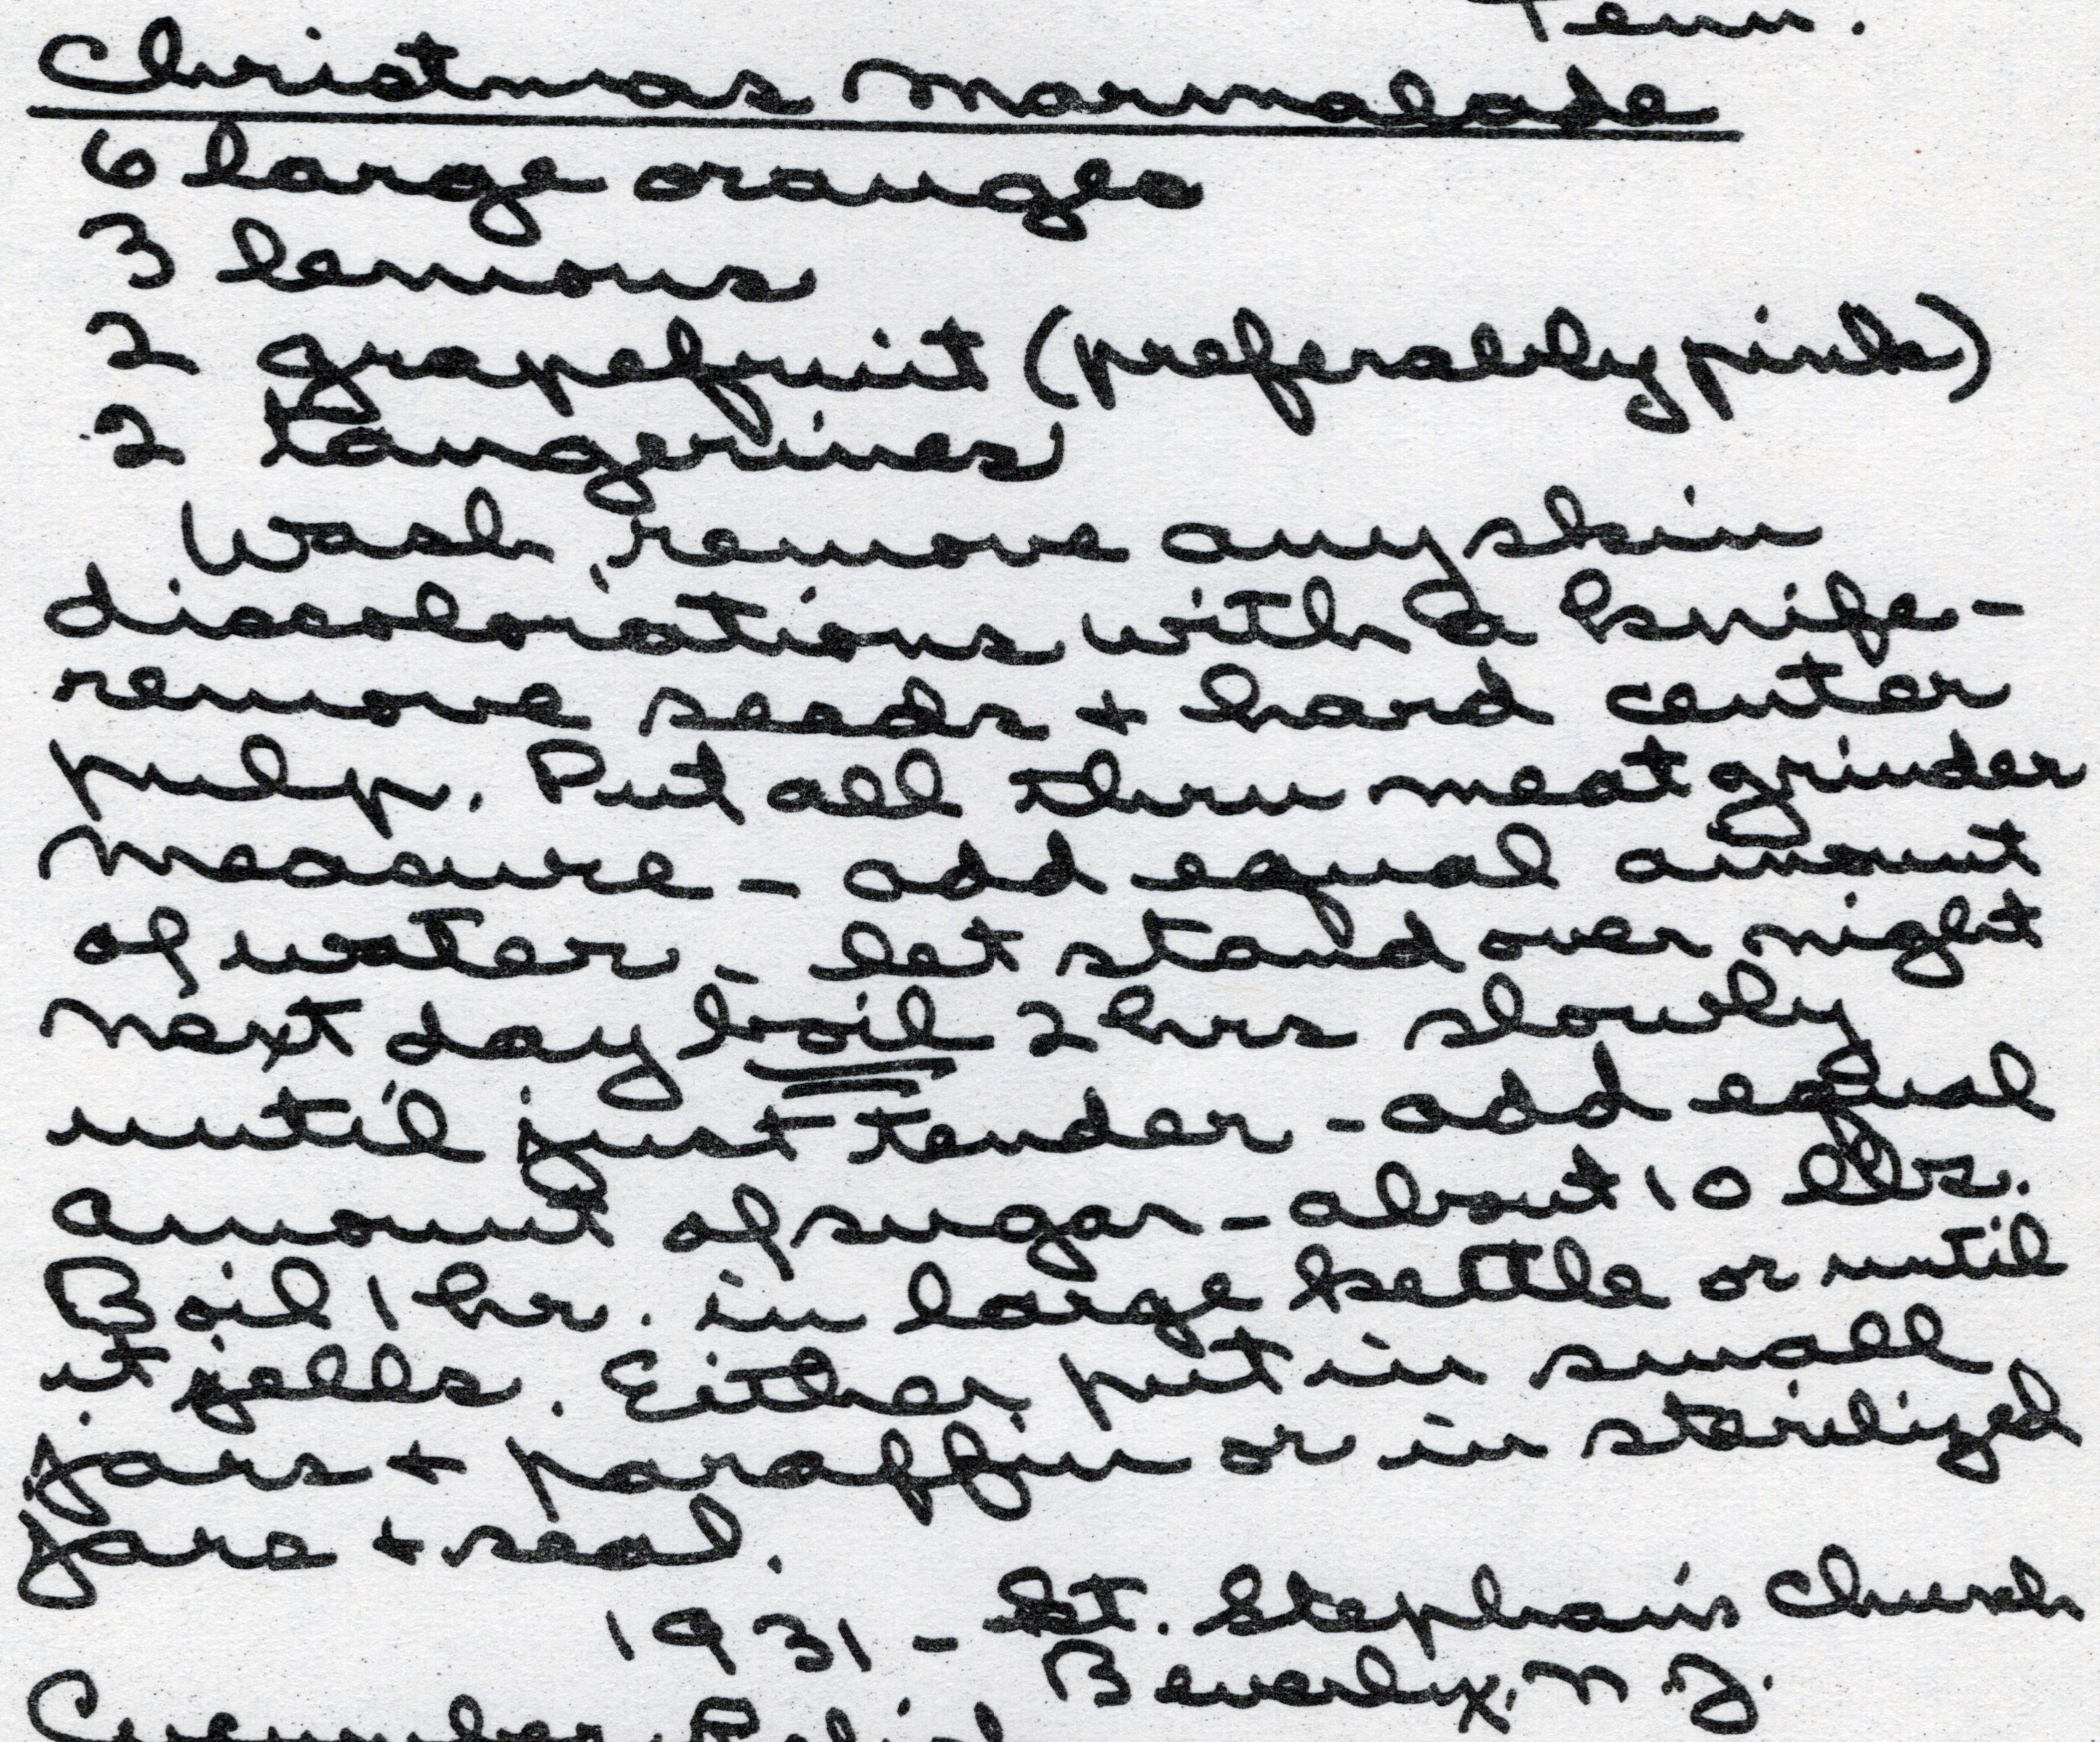 Tenn.
Christmas Marmalade
6 large oranges
3 lemons
2 grapefruit (preferably pink)
2 tangerines
Wash, remove any skin
discolorations with a knife -
remove seeds + hard center
pulp. Put all thru meat grinder
Measure - add equal amount
of water - let stand over night
Next day boil 2 hrs slowly
until just tender - add equal
amount of sugar - about 10 lbs.
Boil 1 hr. in large kettle or until
it jells. Either put in small
jars + paraffin or in sterilized
jars + seal.
1931 - St. Stephan's Church
Beverly, N.J.
Cucumber Relish